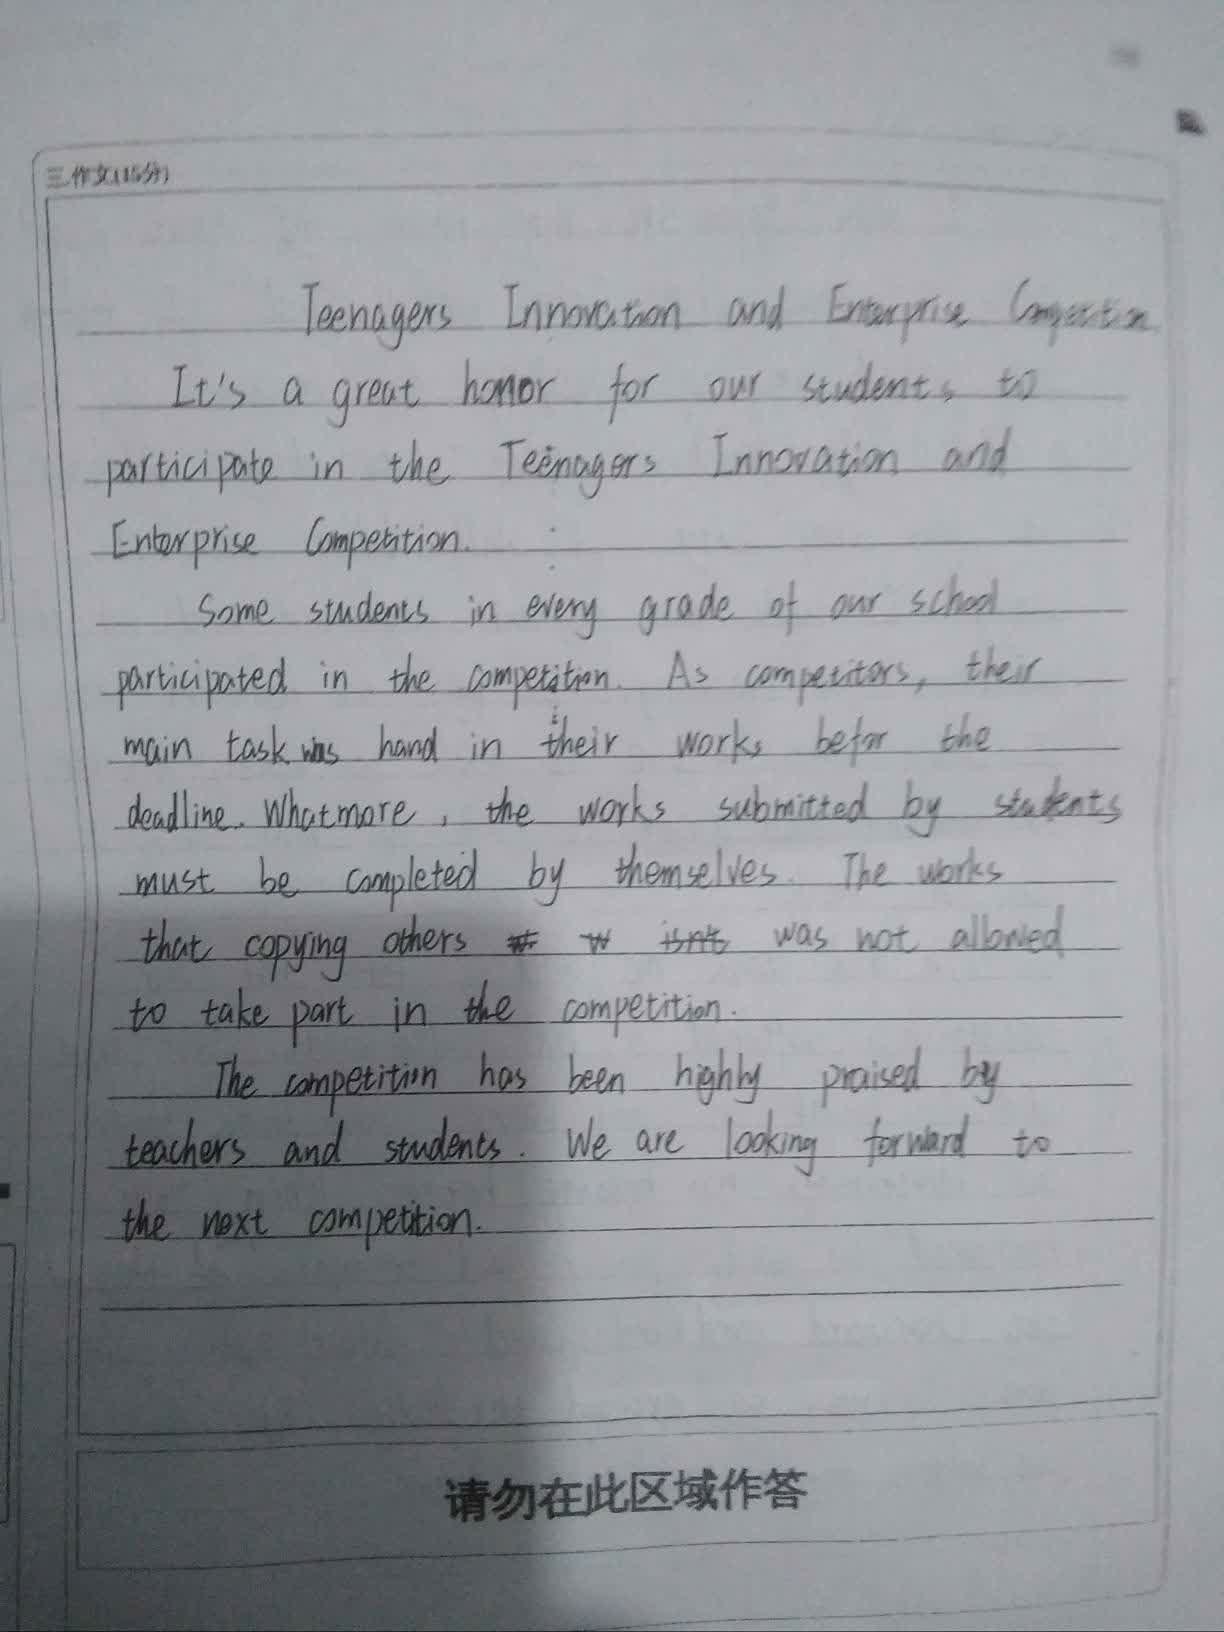 三.作文(15分)
Teenagers Innovation and Enterprise
It's a great honor for our students to
participate in the Teenagers Innovation and
Enterprise Competition.
Some students in every grade of our school
participated in the competition. As competitors, their
main task was hand in their works befor the
deadline. Whatmore, the works submitted by students
must be completed by themselves. The works
that copying others was not allowed
to take part in the competition.
The competition has been highly praised by
teachers and students. We are looking forward to
the next competition.
请勿在此区域作答